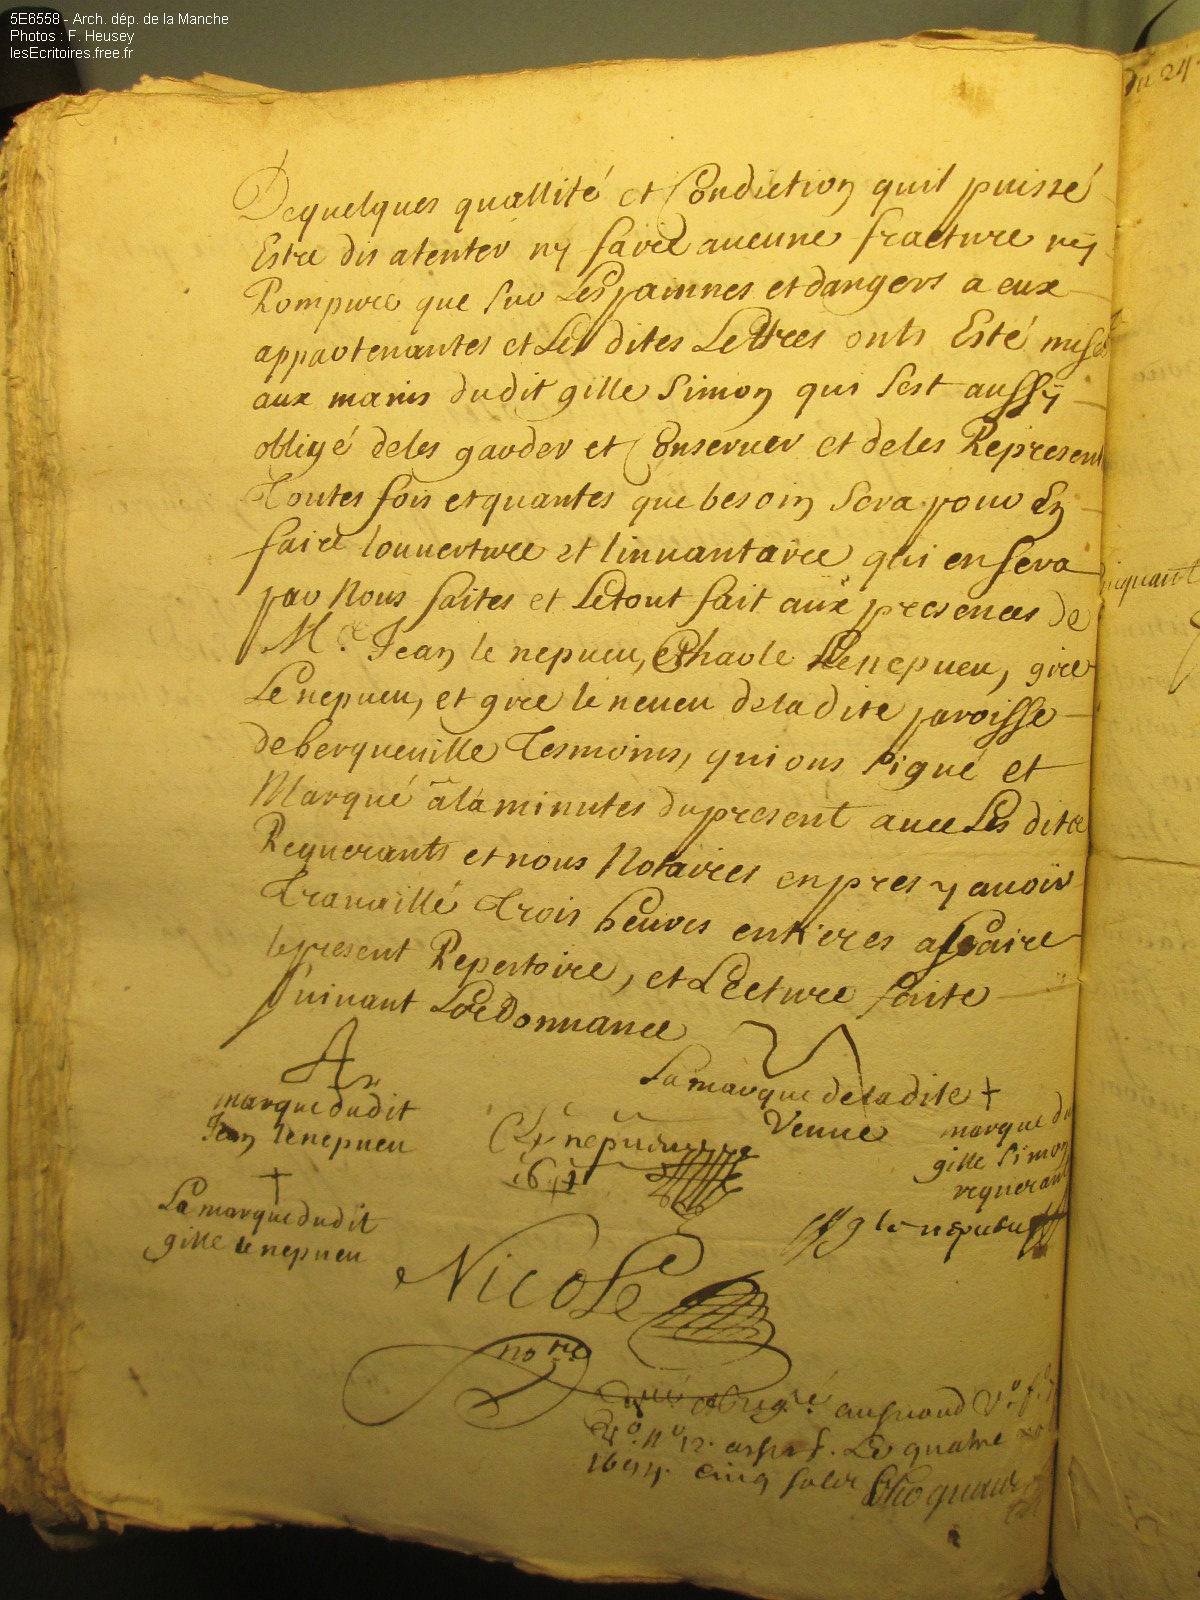 5E6558 - Arch. dép. de la Manche
Photos : F. Heusey
lesEcritoires.free.fr
du 24
Dequelques quallité et Condiction quil puissé
Estre dis atenter ny faire aucune fracture ny
Rompure que sur Les painnes et dangers a eux
appartenantes et Les dites Lettres onts Esté mises
aux mains dudit gille Simon qui sest aussy
obligé deles garder et Conserver et deles Represent
Toutes fois et quantes que besoin sera pour En
faire louverture et linuantaire qui en sera
par Nous faites et Letout fait aux presences de
Me Jean le nepueu, Charle Lenepueu, gire
Le nepueu, et gire le neueu deladite paroisse
deberqueuille Tesmoins, qui ons signé et
Marqué a la minutes du present auec Les dite
Requerants et nous Notaires enpres y auoir
Trauaillé Trois heures entieres afaire
le present Repertoire, et Lecture faite
suiuant Lordonnance
marque dudit
Jean lenepueu
La marque deladite +
Veuue
marque du
gille Simon
requerant
C Le nepueu
La marque dudit
gille lenepueu
g le nepueu
Nicolle
nore
au second Vo
Le quatre
1694. cinq solz